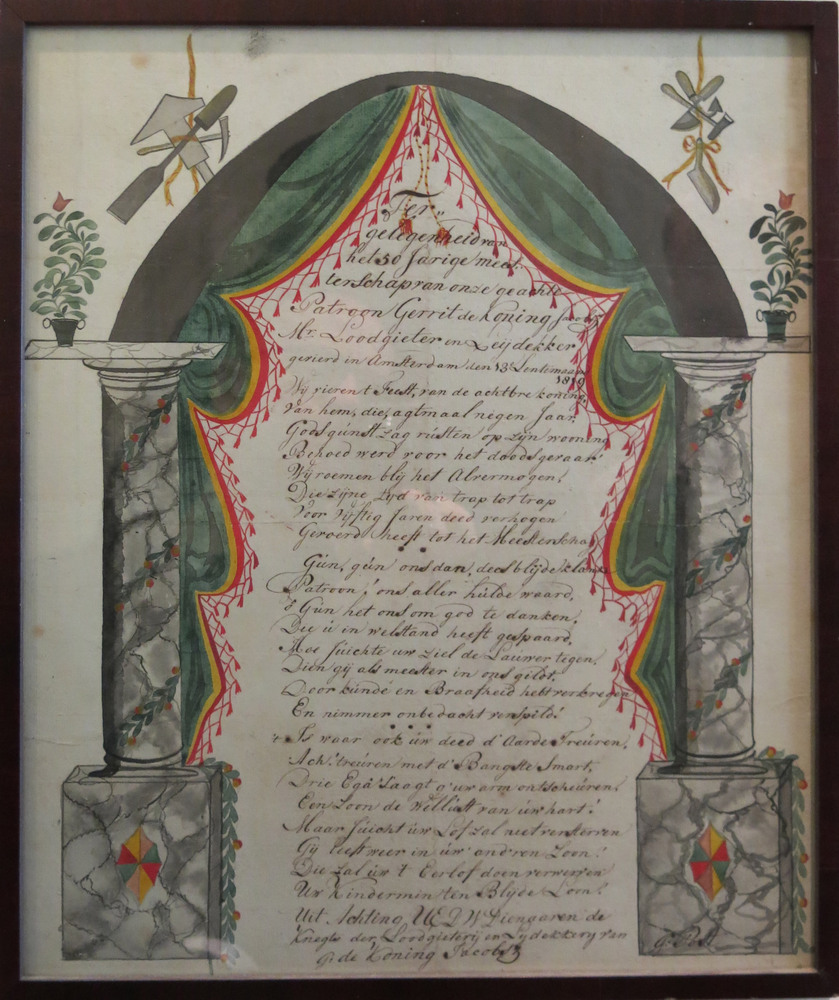 Ter
gelegenheid van
het 50 Jarige mees-
terschap van onze geachte
Patroon Gerrit de Koning Jacobsz
Mr. Loodgieter en Leydekker
gevierd in Amsterdam den 13 Lentemaand
1819
Wij vieren t Feest, van de achtbre koning,
Van hem, die, agtmaal negen Jaar,
Godsgunst zag rusten op zijn wooning
Behoed werd voor het doodsgevaar
Wij roemen blij het Alvermogen!
Die zijne tyd van trap tot trap
Voor Vijftig Jaren deed verhogen
Gevoerd heeft tot het Meesterschap
Gun, gun ons dan, dees blijde klanken
Patroon! ons aller hulde waard,
Gun het ons om god te danken,
Die u in welstand heeft gespaard,
Hoe Juichte uw ziel de Lauwer tegen!
Dien gij als meester in ons gildt,
Door kunde en Braafheid hebt verkregen
En nimmer onbedacht verspild!
Is waar ook uw deed d'Aarde Treuren,
Ach! treuren met d' Bangste Smart,
Drie Egâ's aagt g'uw arm ontscheuren,
Een Zoon de Wellust van uw hart!
Maar Juicht uw Lof zal niet versterven
Gij leeft weer in uw and'ren Zoon!
Die zal uw t Eerlof doen verwerven
Uw Kindermin ten Blijde Loon!
Uit Achting UEDW Dienaren de
Knegts der Loodgieterij en Lydekkery van
G: de Koning Jacobsz
G: Post